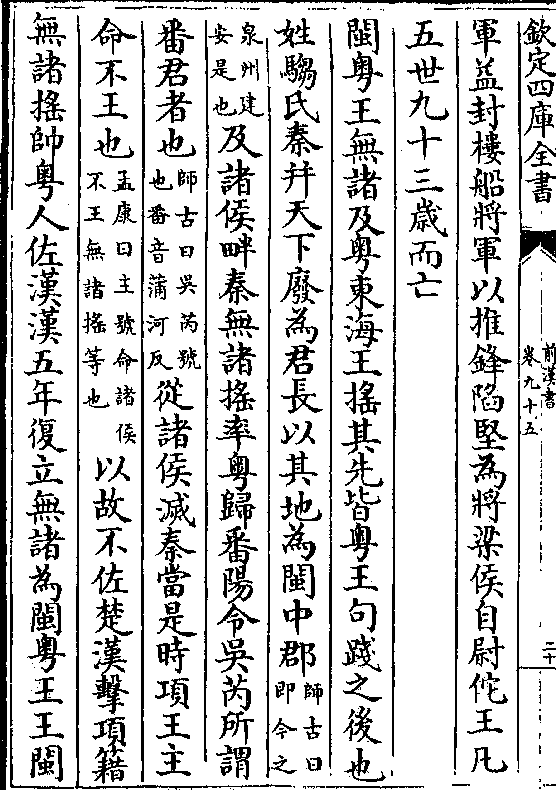 欽定四庫全書
前漢書
卷九十五
二十
軍益封樓船將軍以推鋒陷堅為將梁侯自尉佗王凡
五世九十三歳而亡
閩粤王無諸及粤東海王揺其先皆粤王句踐之後也
姓騶氏秦并天下廢為君長以其地為閩中郡師古曰即今之
泉州建安是也及諸侯畔秦無諸揺率粤歸番陽令吳芮所謂
番君者也師古曰吳芮號也番音蒲河反從諸侯滅秦當是時項王主
命不王也孟康曰主號命諸侯不王無諸揺等也以故不佐楚漢擊項籍
無諸揺帥粤人佐漢漢五年復立無諸為閩粤王王閩